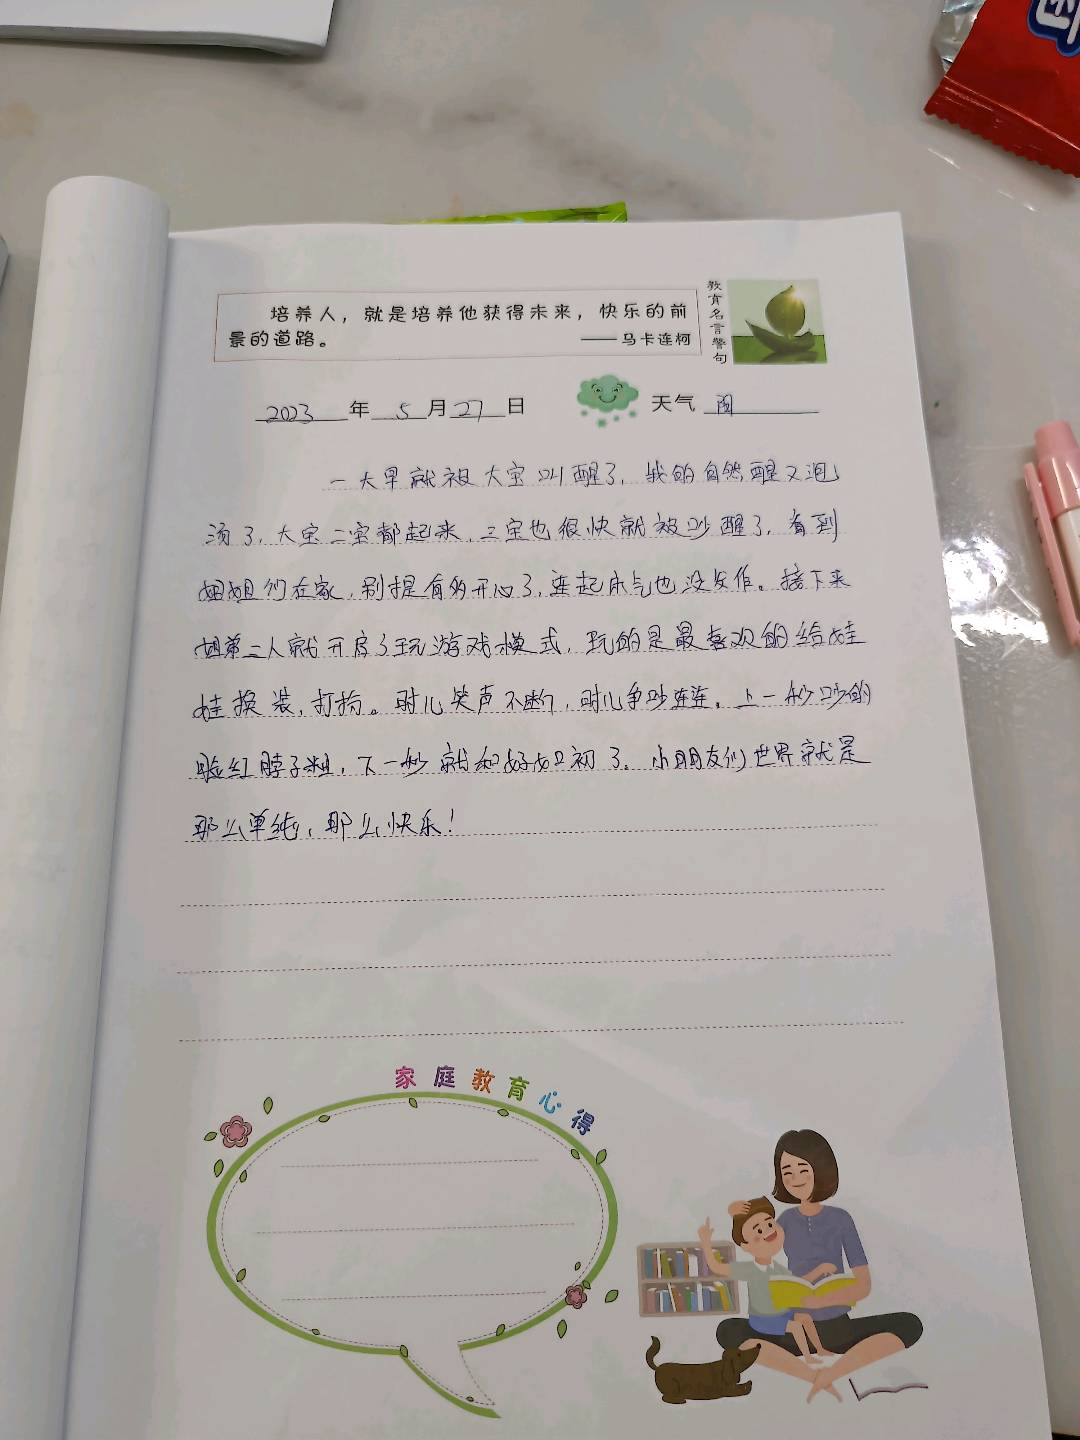 培养人，就是培养他获得未来，快乐的前
景的道路。
——马卡连柯
教育名言警句
2023年5月27日
天气
一大早就被大宝叫醒了，我的自然醒又泡
汤了，大宝二宝都起来，三宝也很快就被吵醒了，看到
姐姐们在家，别提有多开心了，连起床气也没发作。接下来
姐弟三人就开启了玩游戏模式，玩的是最喜欢的给娃
娃换装，打扮。时儿笑声不断，时儿争吵连连，上一秒吵的
脸红脖子粗，下一秒就和好如初了。小朋友们世界就是
那么单纯，那么快乐！
家庭教育心得